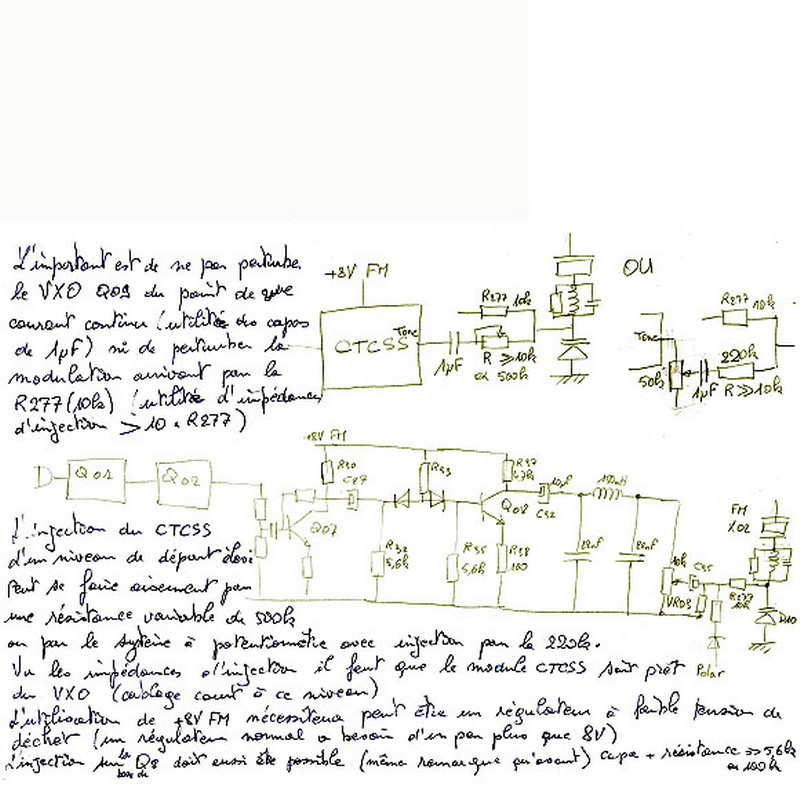 L'important est de ne pas perturber
le VXO Q09 du point de vue
courant continu (utilité des capas
de 1µF) ni de perturber la
modulation arrivant par la
R277 (10k) (utilité d'impédances
d'injection > 10 . R277)
+8V FM
CTCSS
Tone
1µF
R277 10k
R ≥ 10k
ou 500k
OU
Tone
50k
R277 10k
220k
1µF R ≥ 10k
+8V FM
D
Q01
Q02
R30
C27
Q07
R33
R32
5,6k
R35
5,6k
R37
Q08
R38
100
10µF
C32
22nF
22nF
10k
VR03
C35
R277
10k
Polar
FM
X02
D10
L'injection du CTCSS
d'un niveau de départ élevé
peut se faire aisement par
une résistance variable de 500k
ou par le système à potentiomètre avec injection par la 220k.
Vu les impédances d'injection il faut que le module CTCSS soit prêt
du VXO (cablage court à ce niveau)
L'utilisation de +8V FM nécessitera peut être un régulateur à faible tension de
déchet (un régulateur normal a besoin d'un peu plus que 8V)
L'injection sur la base de Q8 doit aussi être possible (même remarque qu'avant) capa + résistance >> 5,6k
ou 100k